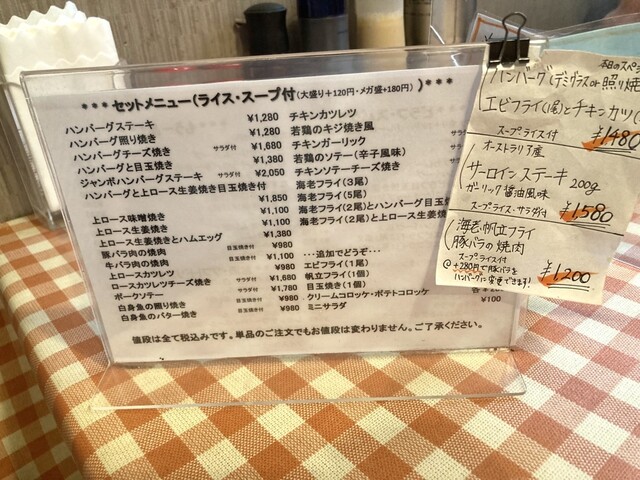 *** セットメニュー(ライス・スープ付(大盛り+120円・メガ盛+180円) )***
ハンバーグステーキ ¥1,280
ハンバーグ照り焼き ¥1,280
ハンバーグチーズ焼き ¥1,680
ハンバーグと目玉焼き サラダ付 ¥1,380
ジャンボハンバーグステーキ サラダ付 ¥2,050
ハンバーグと上ロース生姜焼き目玉焼き付
¥1,850
上ロース味噌焼き ¥1,100
上ロース生姜焼き ¥1,100
上ロース生姜焼きとハムエッグ ¥1,380
豚バラ肉の焼肉 目玉焼き付 ¥980
牛バラ肉の焼肉 目玉焼き付 ¥1,100
上ロースカツレツ ¥980
ロースカツレツチーズ焼き サラダ付 ¥1,680
ポークソテー サラダ付 ¥1,780
白身魚の照り焼き 目玉焼き付 ¥980
白身魚のバター焼き 目玉焼き付 ¥980
チキンカツレツ
若鶏のキジ焼き風
チキンガーリック
若鶏のソテー(辛子風味)
チキンソテーチーズ焼き
海老フライ(3尾)
海老フライ(5尾)
海老フライ(2尾)とハンバーグ目玉焼き
海老フライ(2尾)と上ロース生姜焼
・・・追加でどうぞ・・・
エビフライ(1尾)
帆立フライ(1個)
目玉焼き(1個)
クリームコロッケ・ポテトコロッケ
ミニサラダ ¥100
値段は全て税込みです。単品のご注文でもお値段は変わりません。ご了承ください。
本日のスペシ
ハンバーグ(デミグラスor照り焼
エビフライ(1尾)とチキンカツ(
スープライス付 ¥1480
オーストラリア産
サーロインステーキ 200g
ガーリック醤油風味
スープライス・サラダ付 ¥1580
海老・帆立フライ
豚バラの焼肉
スープライス付
@+280円で豚バラを
ハンバーグに変更できます! ¥1200